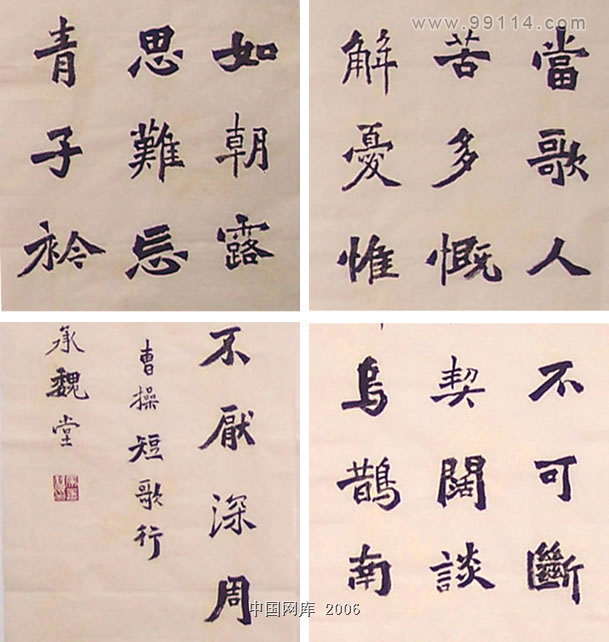 www.99114.com
當歌人
苦多慨
解憂惟
如朝露
思難忘
青子衿
不可斷
契闊談
烏鵲南
不厭深周
曹操短歌行
承魏堂
中国网库 2006